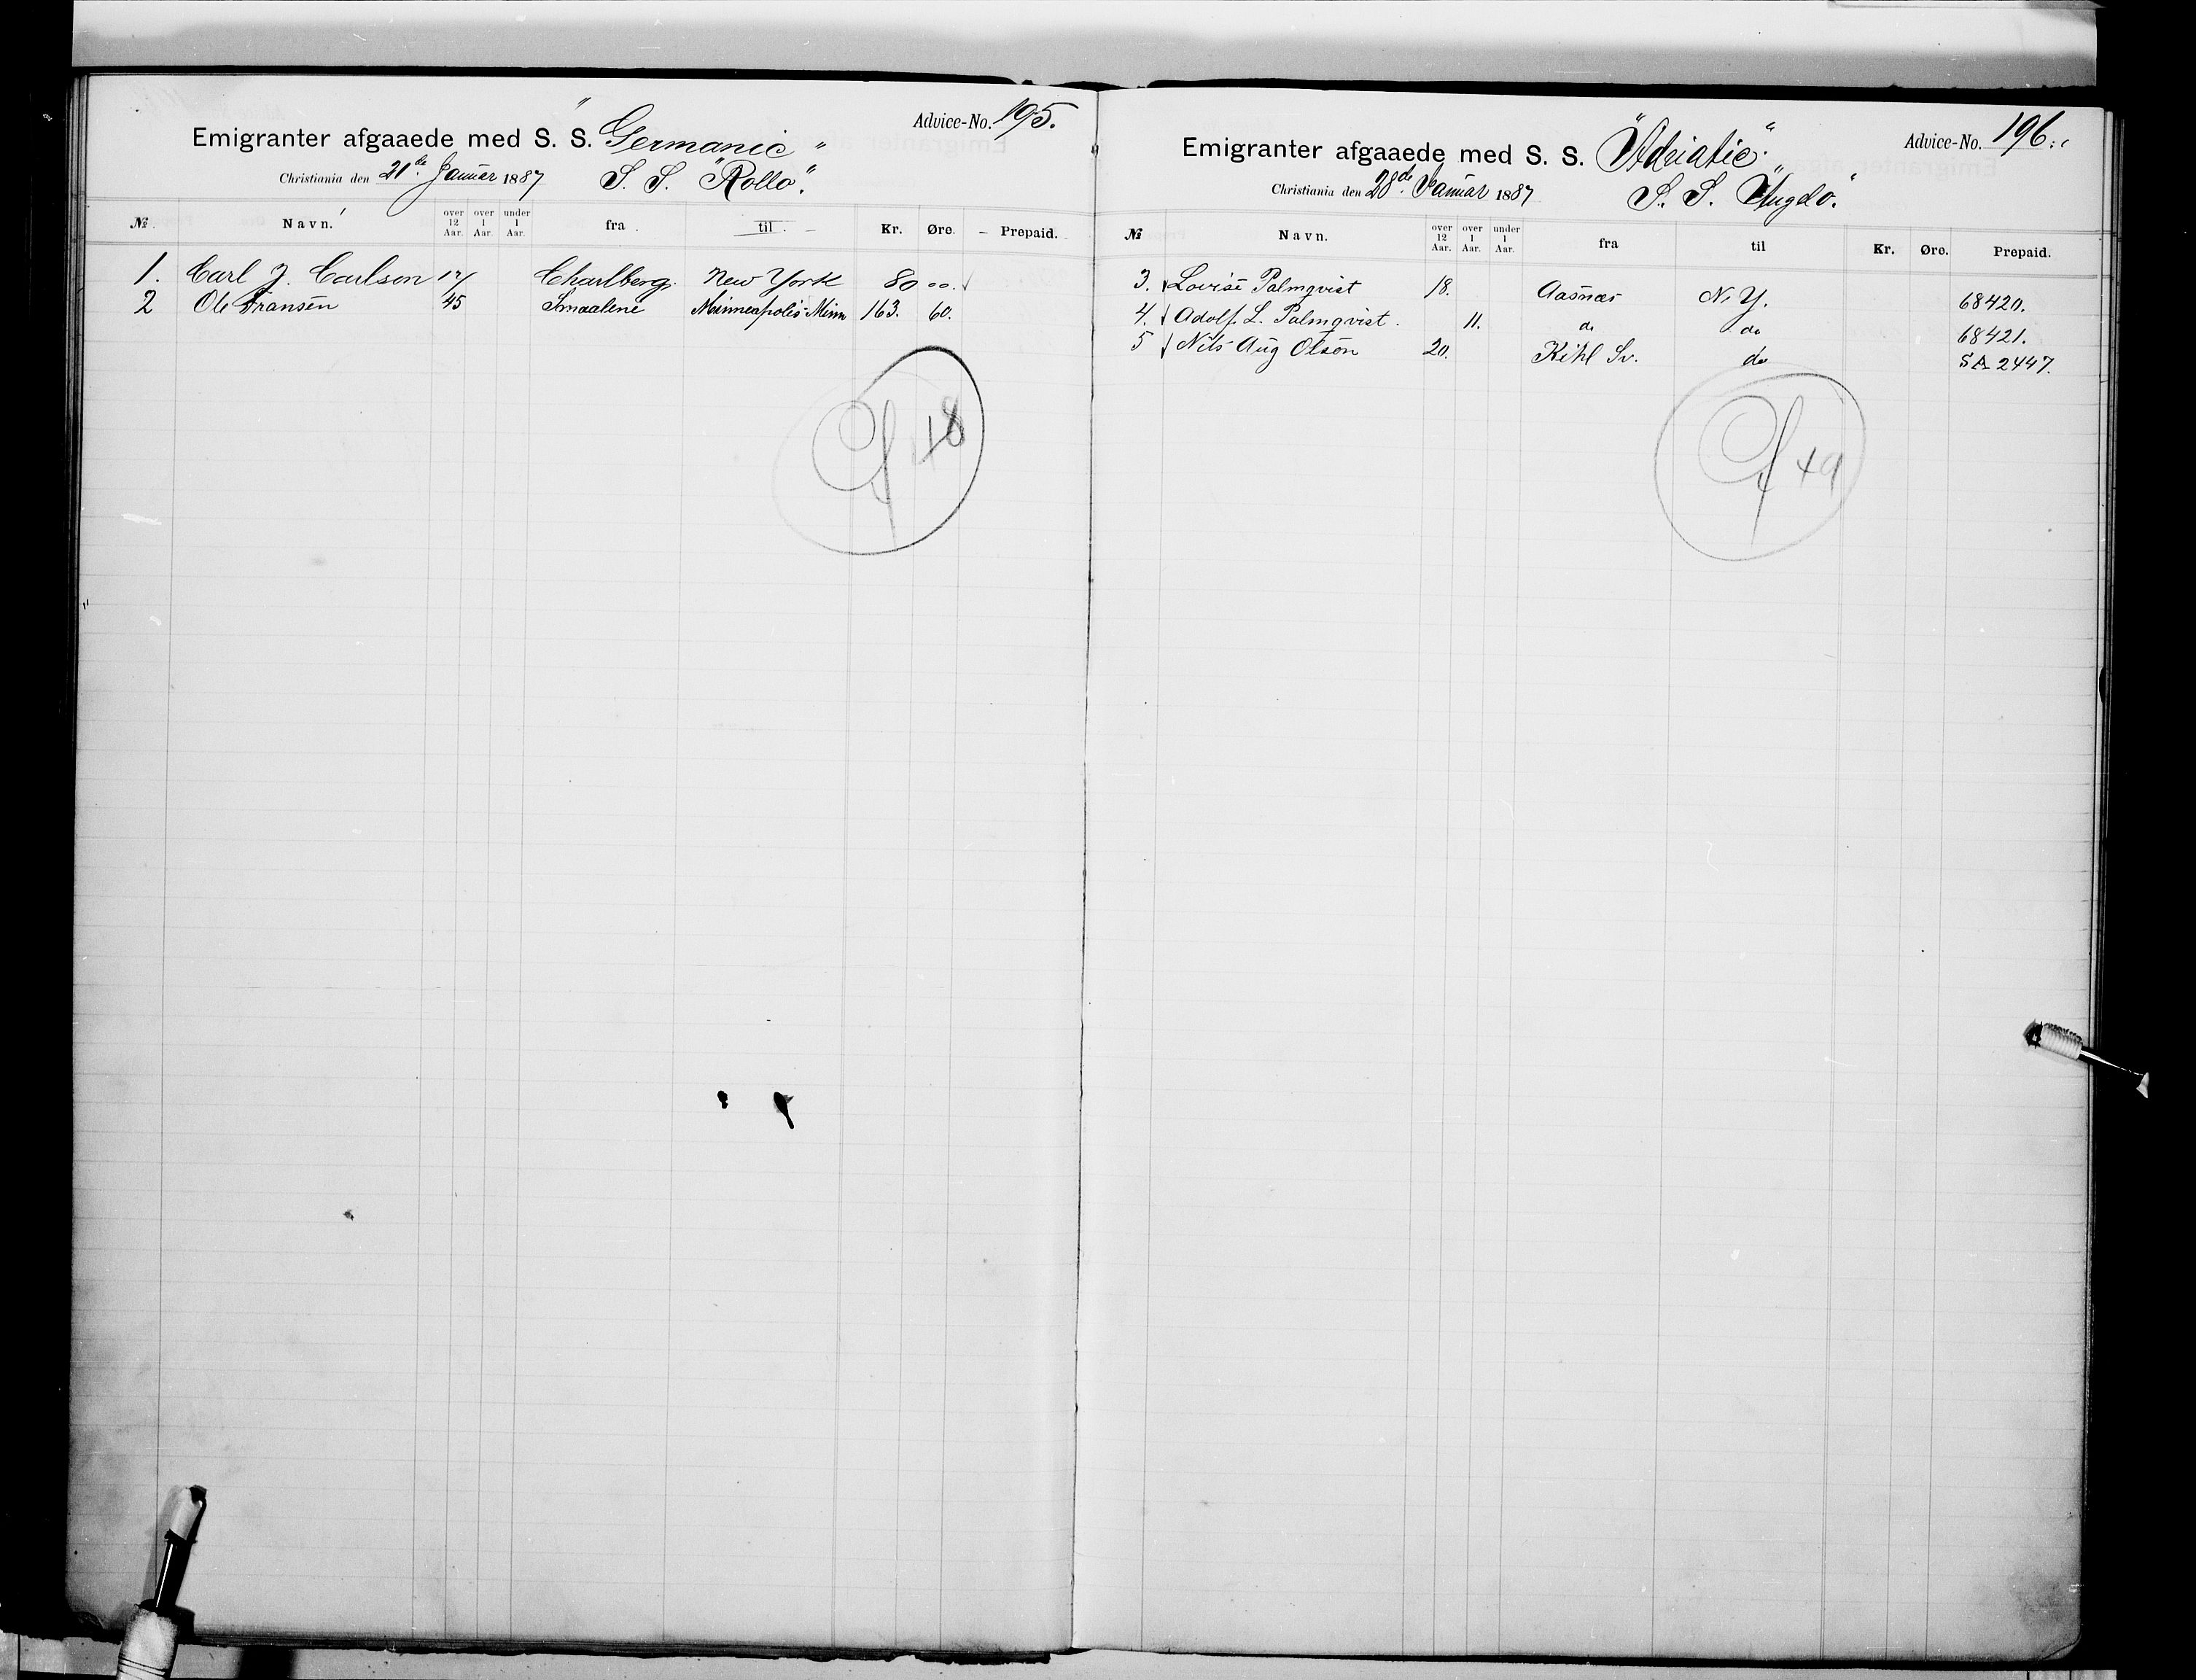 Advice-No. 195.
Emigranter afgaaede med S. S. "Germanic"
Christiania den 21de Januar 1887 S. S. "Rollo".
№ Navn. over 12 Aar. over 1 Aar. under 1 Aar. fra til Kr. Øre. Prepaid.
1. Carl J. Carlson 17 Charlberg New York 80 00.
2 Ole Fransen 45 Smaalene Minneapolis Minn 163. 60.
48
Advice-No. 196.
Emigranter afgaaede med S. S. "Adriatic"
Christiania den 28de Januar 1887 S. S. "Angelo."
№ Navn. over 12 Aar. over 1 Aar. under 1 Aar. fra til Kr. Øre. Prepaid.
3. Lovise Palmqvist 18. Aasnæs N. Y. 68420.
4. Adolf. L. Palmqvist. 11. do do 68421.
5 Nils Aug Olson 20. Kihl Sv. do SA 2447.
49